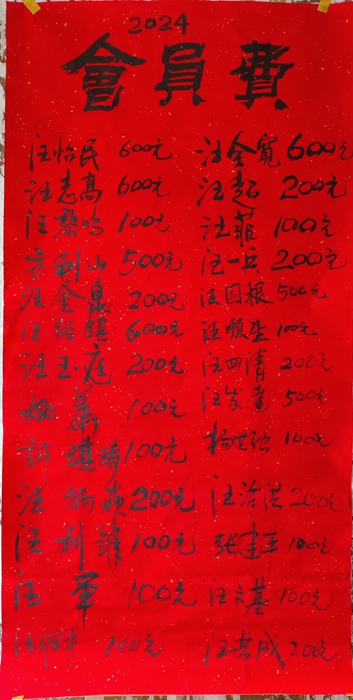 2024
會員費
汪怡民 600元 汪金寬 600元
汪志高 600元 汪超 200元
汪黎鸣 100元 汪菲 100元
方利山 500元 汪一兵 200元
汪金泉 200元 汪国根 500元
汪绍镇 600元 汪顺生 100元
汪玉庭 200元 汪四清 200元
姚华 100元 汪发 500元
許琦 100元 杨世强 100元
汪炳 200元 汪治洪 200元
汪利锋 100元 张建平 100元
汪军 100元 汪文基 100元
汪 100元 汪共成 200元